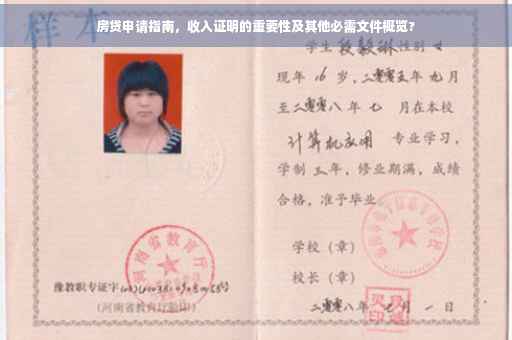 房贷申请指南，收入证明的重要性及其他必需文件概览?
样本
学生 段毅琳 性别 女
现年 16 岁，二零零五年 九月
至二零零八年 七 月在本校
计算机应用 专业学习，
学制 三 年，修业期满，成绩
合格，准予毕业
学校（章）
校长（章）
二零零八年 七 月 一 日
河南省教育厅
豫教职专证字
（河南省教育厅验印）